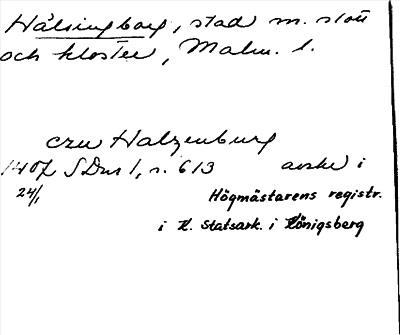 Hälsingborg, stad m. slott
och kloster, Malm. l.
czu Halzenburg
1407 SDns 1, s. 613 avskr i
24/1
Högmästarens registr.
i K. Statsark. i Königsberg